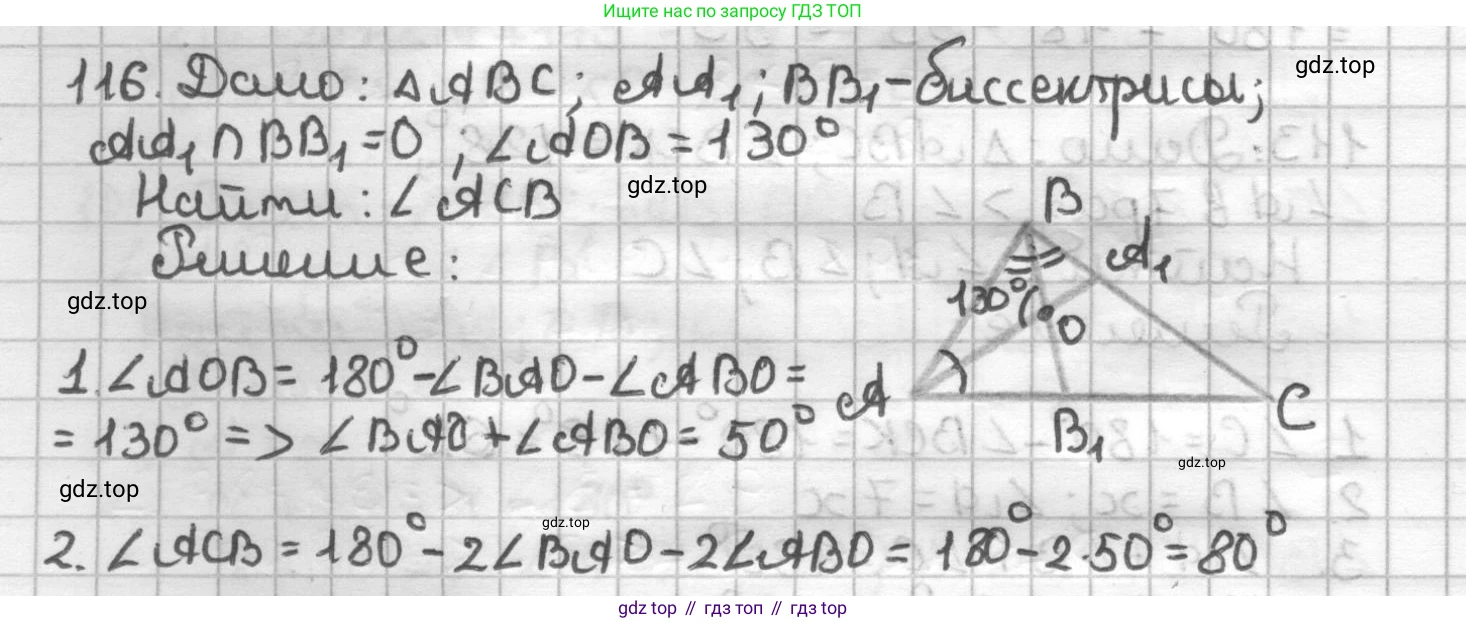 Ищите нас по запросу ГДЗ ТОП
116. Дано: △ABC; AA₁; BB₁-биссектрисы;
gdz.top
AA₁ ∩ BB₁ = O, ∠AOB = 130°
Найти: ∠ACB
gdz.top
B
Решение:
A₁
gdz.top
130°
O
1. ∠AOB = 180° - ∠BAO - ∠ABO =
A
C
= 130° => ∠BAO + ∠ABO = 50°
B₁
gdz.top
gdz.top
gdz.top
2. ∠ACB = 180° - 2∠BAO - 2∠ABO = 180° - 2·50° = 80°
gdz top // гдз топ // гдз top